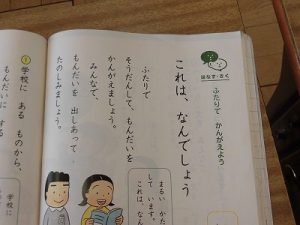 はなす・きく
ふたりで かんがえよう
これは、なんでしょう
ふたりで
そうだんして、もんだいを
かんがえましょう。
みんなで、
もんだいを 出しあって、
たのしみましょう。
まるい かた
して います。
これは、なん
1
学校に ある ものから、
もんだいに する
学校に